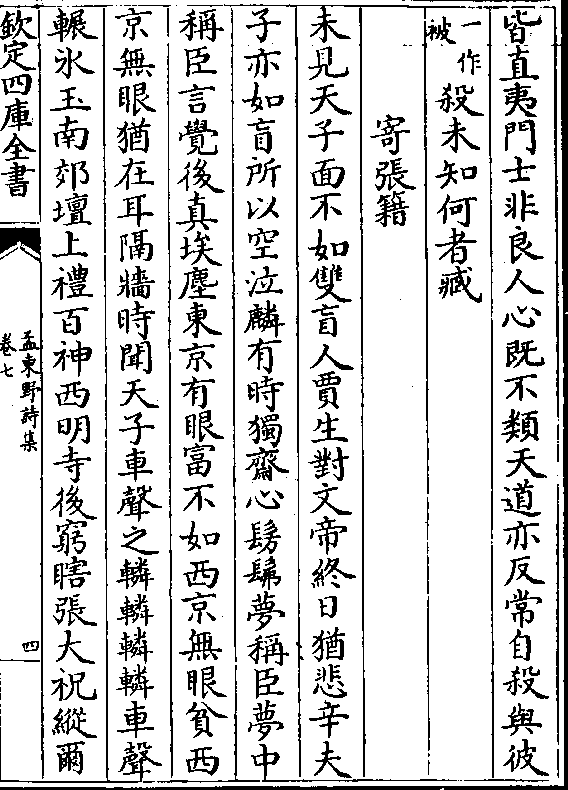 皆直夷門士非良人心既不類天道亦反常自殺與彼
一作
被
殺未知何者臧
寄張籍
未見天子面不如雙盲人賈生對文帝終日猶悲辛夫
子亦如盲所以空泣麟有時獨齋心髣髴夢稱臣夢中
稱臣言覺後真埃塵東京有眼富不如西京無眼貧西
京無眼猶在耳隔牆時聞天子車聲之轔轔轔轔車聲
輾氷玉南郊壇上禮百神西明寺後窮瞎張太祝縱爾
欽定四庫全書
孟東野詩集
卷七
四